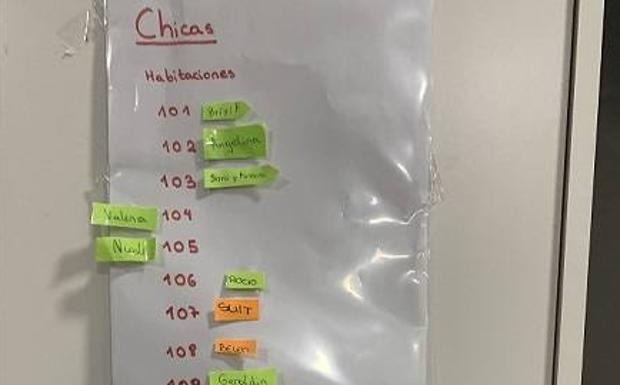 Chicas
Habitaciones
101 Brixit
102 Angelina
103 Sara y
Valeria 104
105
106 ROCIO
107 SUIT
108 BELEN
109 Geraldin